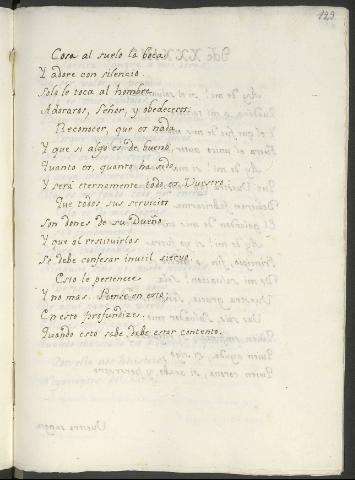 123
Cosa al suelo la boca
Y adore con silencio.
Solo le toca al hombre
Adoraros, Señor, y obedeceros.
Reconocer, que es nada
Y que si algo es de bueno,
Quanto es, quanto ha sido,
Y será eternamente todo es Vuestro
Que todos sus servicios
Son dones de su Dueño
Y que al restituirlos
Se debe confesar inutil siervo.
Esto le pertenece
Y no mas. Piense en esto,
En esto profundize,
Quando esto sabe, debe estar contento.